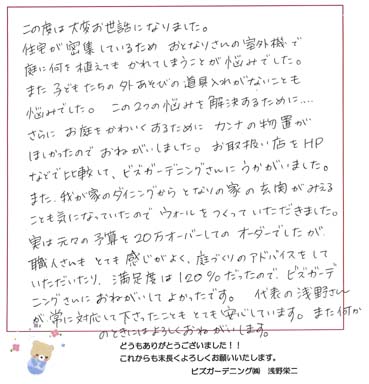 この度は大変お世話になりました。
住宅が密集しているため おとなりさんの室外機で
庭に何を植えても かれてしまうことが悩みでした。
また 子どもたちの外あそびの道具入れがないことも
悩みでした。 この2つの悩みを解決するために‥‥
さらに お庭をかわいくするために カンナの物置が
ほしかったので おねがいしました。 お取扱い店をHP
などで比較して、ビズガーデニングさんにうかがいました。
また、我が家のダイニングから となりの家の玄関がみえる
ことも気になっていたので ウォールをつくっていただきました。
実は元々の予算を20万オーバーしての オーダーでしたが、
職人さんも とても感じがよく、庭づくりのアドバイスをして
いただいたり、満足度は120%だったので、ビズガーデ
ニングさんにおねがいして よかったです。 代表の浅野さん
が常に対応して下さったことも とても安心しています。また何か
のときにはよろしくおねがいします。
どうもありがとうございました!!
これからも末長くよろしくお願いいたします。
ビズガーデニング㈱ 浅野栄二